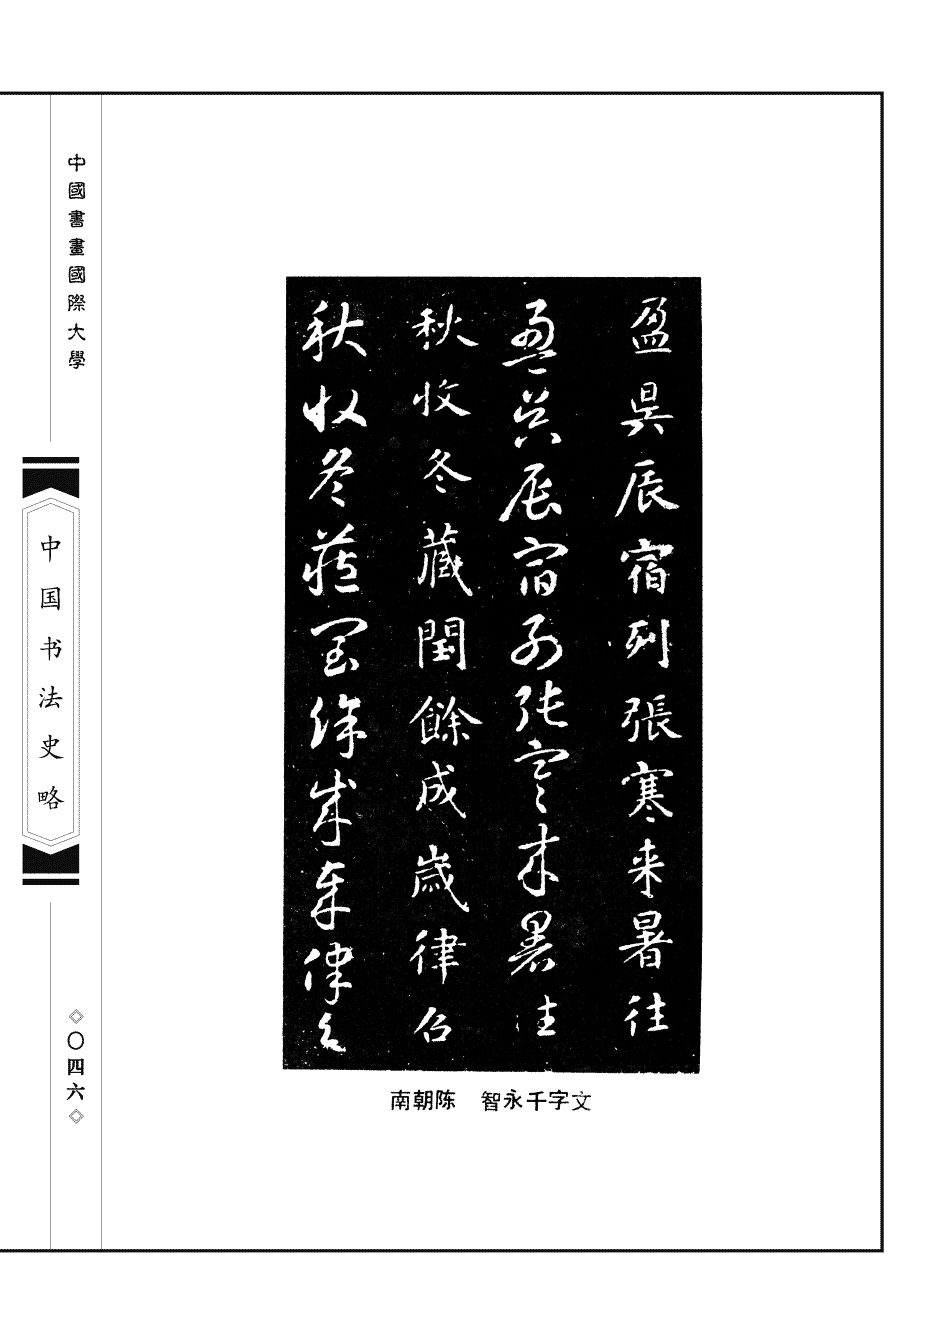 中國書畫國際大學
中国书法史略
〇四六
盈昃辰宿列張寒来暑往
盈昃辰宿列張寒来暑往
秋收冬藏閏餘成歲律召
秋收冬藏閏餘成歲律召
南朝陈 智永千字文